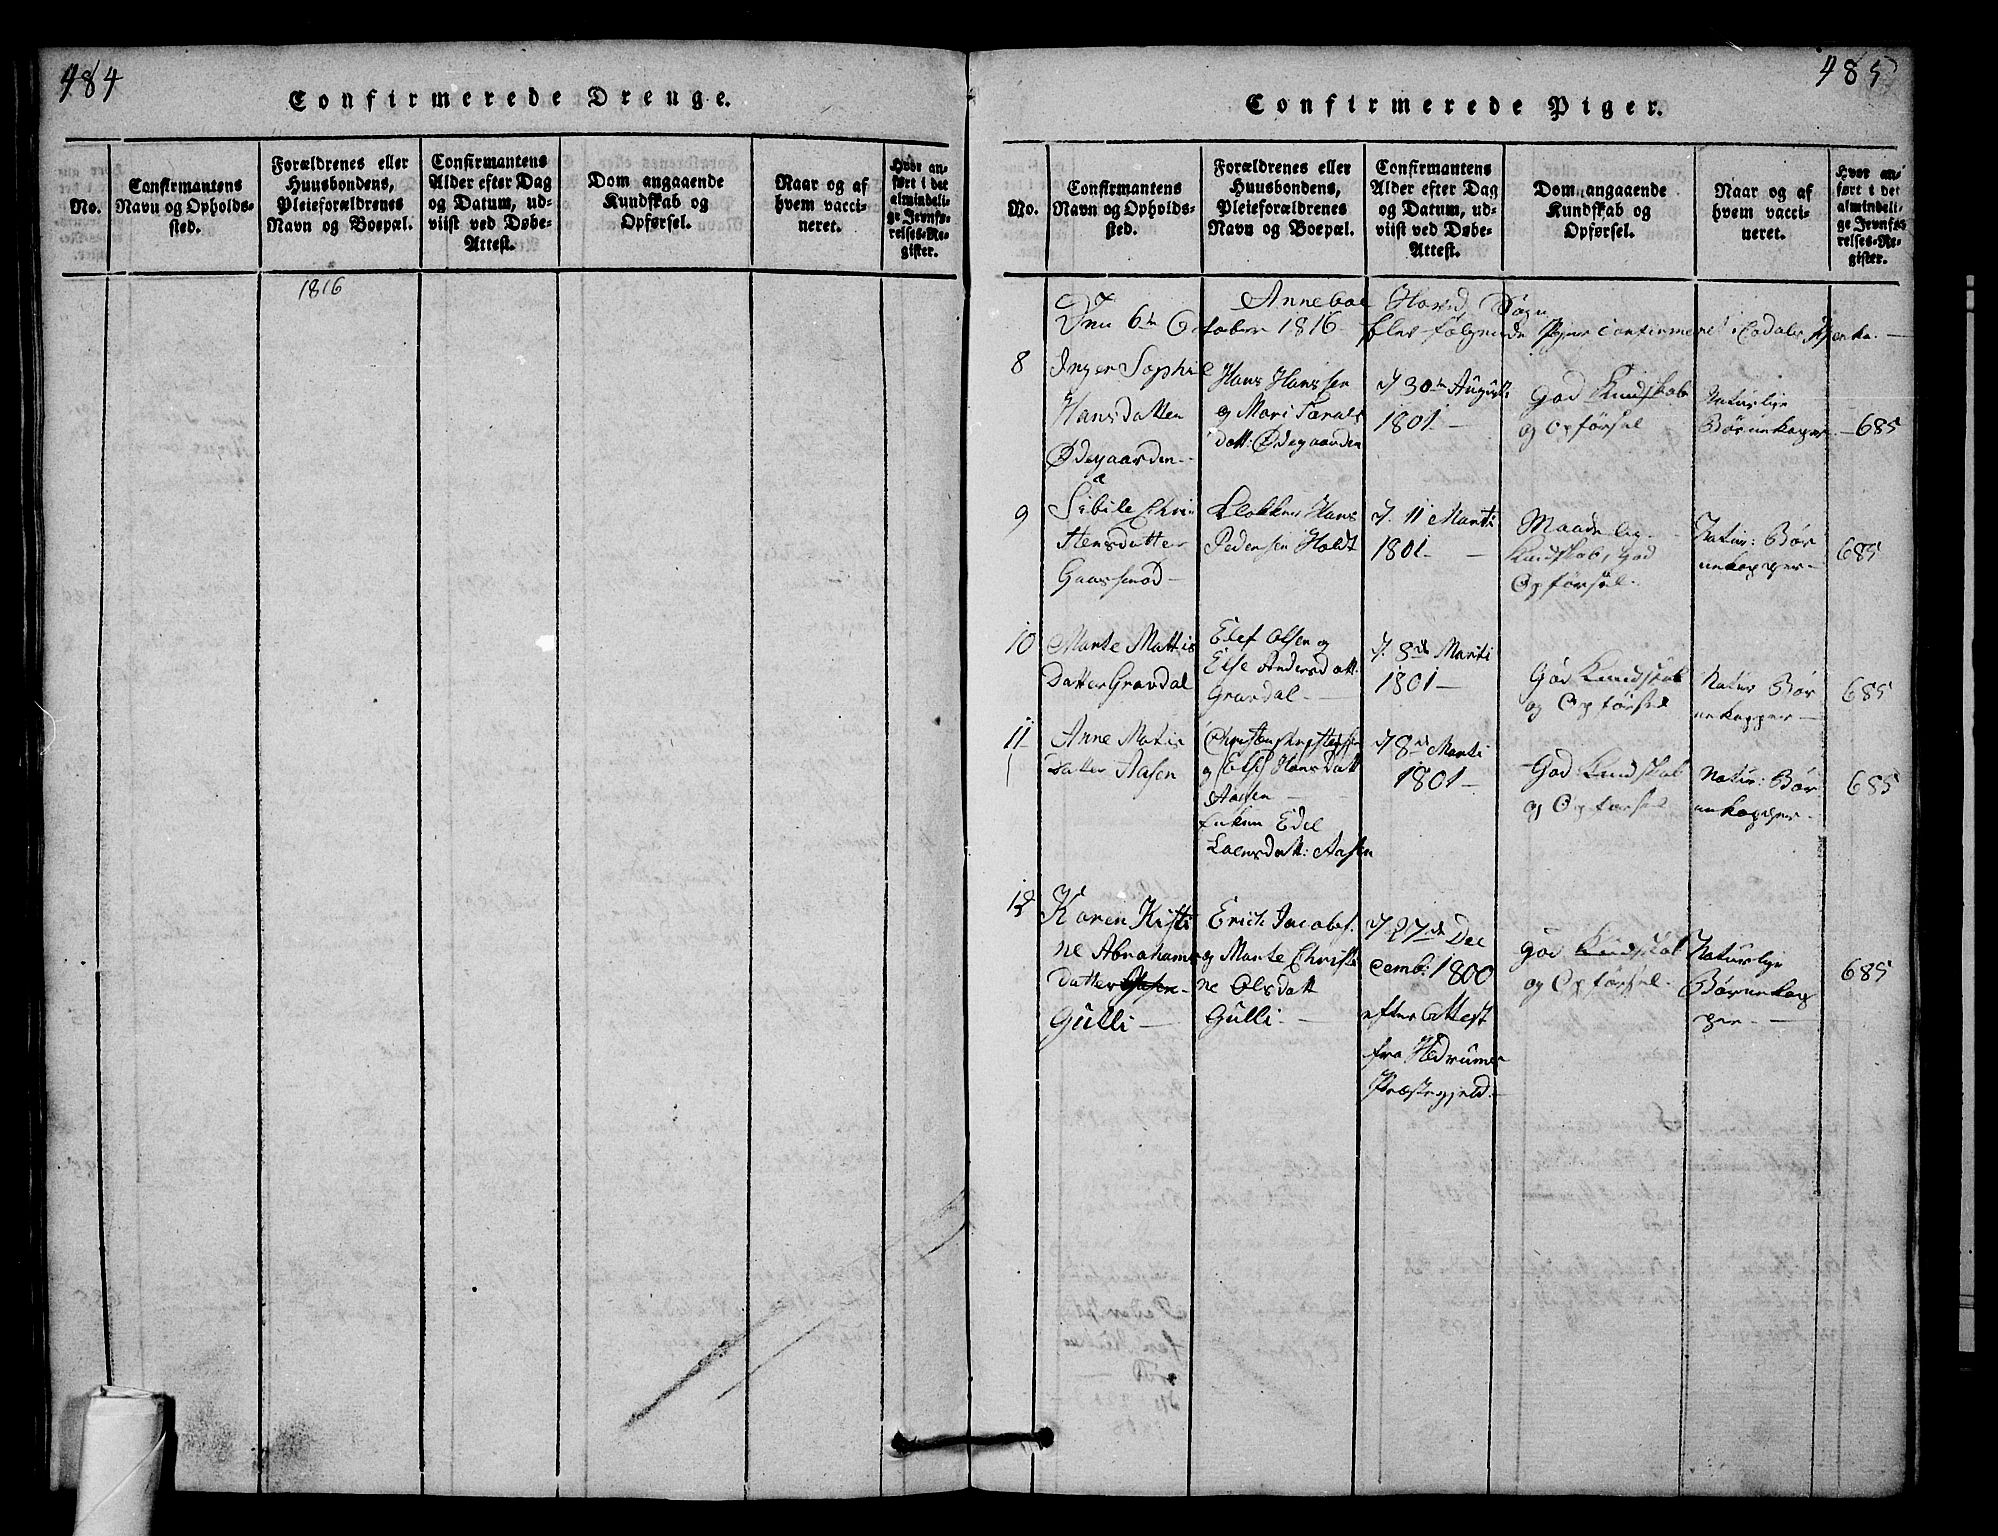 484
Confirmerede Drenge.
No.
Confirmantens
Navn og Opholds-
sted.
Forældrenes eller
Huusbondens,
Pleieforældrenes
Navn og Boepæl.
Confirmantens
Alder efter Dag
og Datum, ud-
viist ved Døbe-
Attest.
Dom angaaende
Kundskab og
Opførsel.
Naar og af
hvem vacci-
neret.
Hvor an-
ført i det
almindeli-
ge Jevnfø-
relses-Re-
gister.
1816
485
Confirmerede Piger.
No.
Confirmantens
Navn og Opholds-
sted.
Forældrenes eller
Huusbondens,
Pleieforældrenes
Navn og Boepæl.
Confirmantens
Alder efter Dag
og Datum, ud-
viist ved Døbe-
Attest.
Dom angaaende
Kundskab og
Opførsel.
Naar og af
hvem vacci-
neret.
Hvor an-
ført i det
almindeli-
ge Jevnfø-
relses-Re-
gister.
Anneboe Hoved Sogn
Den 6te October 1816 blev følgende Piger confirmeret i
8
Inger Sophie
Hansdatter
Ødegaarden
Hans Hanssen
og Mari Taralds
datt: Ødegaarden
d 30te August
1801 —
God Kundskab
og Opførsel
Naturlige
Børnekopper
685
9
Sibile Chri
stensdatter
Klokker Hans
Pedersen Holdt
d. 11 Marti
1801 —
Maadelig
Kundskab, God
Opførsel
Natur: Bør
nekopper —
685
10
Marte Mattis
Datter Gravdal
Elef Olsen og
Else Andersdatt:
Gravdal —
d. 8de Marti
1801 —
God Kundskab
og Opførsel
Natur Bør
nekopper —
685
11
Anne Matis
Datter Aasen
og Else Hansdatt
Aasen —
Enken Edel
Laersdatt: Aasen
d 8de Marti
1801 —
God Kundskab
og Opførsel
Natur: Bør
nekopper —
685
12
Karen Kisti
ne Abrahams
datter Aasen
Gulli —
Erich Jacobs.
og Marte Christi
ne Olsdatt
Gulli —
d 27de De
cemb: 1800
efter Attest
fra Hedrums
Præstegjeld —
God Kundskab
og Opførsel
Naturlige
Børnekop
per —
685